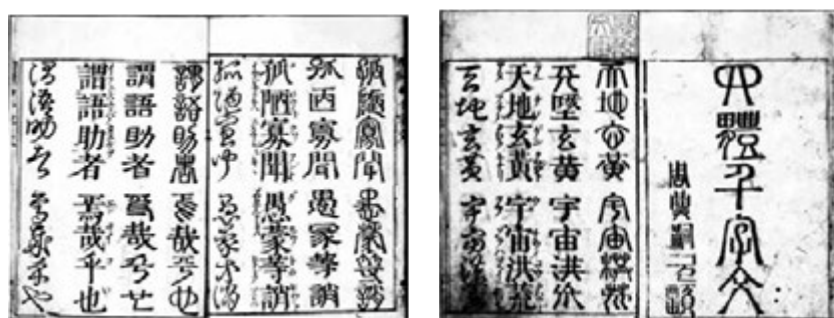 四體千字文
周興嗣次韻
天地玄黃 宇宙洪荒
天墬玄黃 宇宙洪荒
天地玄黃 宇宙洪荒
天地玄黃 宇宙洪荒
孤陋寡聞 愚蒙等誚
孤陋寡聞 愚蒙等誚
孤陋寡聞 愚蒙等誚
孤陋寡聞 愚蒙等誚
謂語助者 焉哉乎也
謂語助者 焉哉乎也
謂語助者 焉哉乎也
謂語助者 焉哉乎也